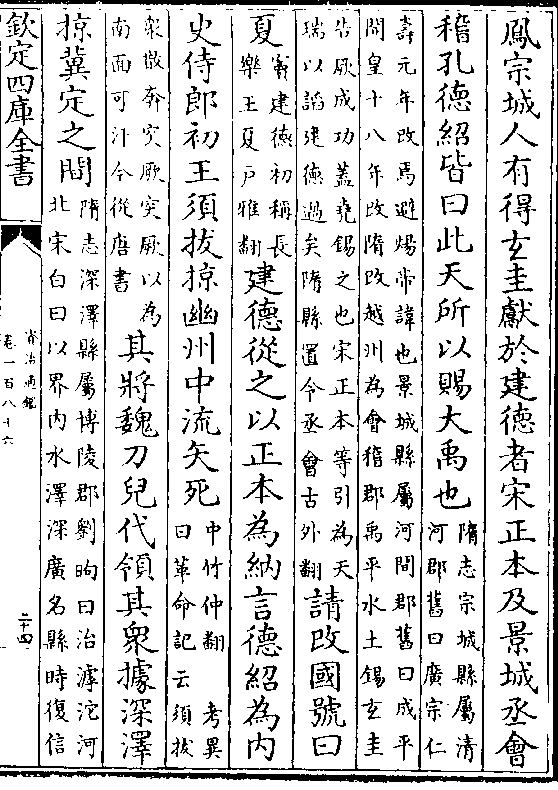 鳳宗城人有得玄圭獻於建德者宋正本及景城丞會
稽孔德紹皆曰此天所以賜大禹也隋志宗城縣屬清河郡舊曰廣宗仁
壽元年改焉避煬帝諱也景城縣屬河間郡舊曰成平開皇十八年改隋改越州為會稽郡禹平水土錫玄圭
告厥成功蓋堯錫之也宋正本等引為天瑞以諂建德過矣隋縣置令丞會古外翻請改國號曰
夏竇建德初稱長樂王夏戶雅翻建德從之以正本為納言德紹為內
史侍郎初王須拔掠幽州中流矢死中竹仲翻考異曰革命記云須拔
衆散奔突厥突厥以為南面可汗今從唐書其將魏刀兒代領其衆據深澤
掠冀定之間隋志深澤縣屬博陵郡劉昫曰治滹沱河北宋白曰以界內水澤深廣名縣時復信
欽定四庫全書
資治通鑑
卷一百八十六
二十四